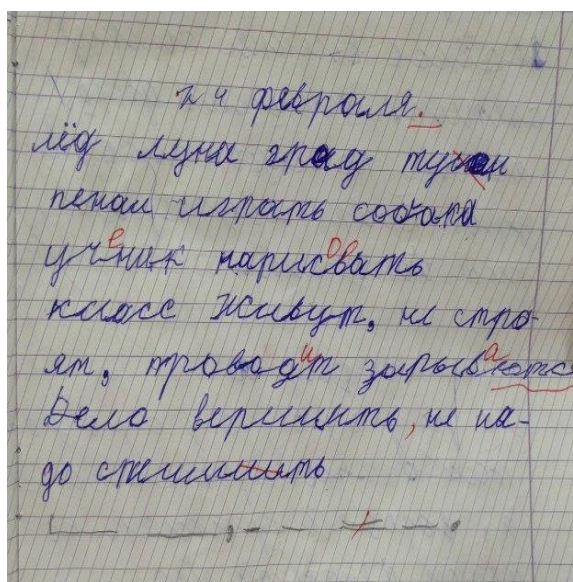 24 февраля.
лёд луна град тучи
пенал играть собака
ученик нарисовать
класс живут, не стро-
ят, проводит зарываются
Дело вершить, не на-
до спешить